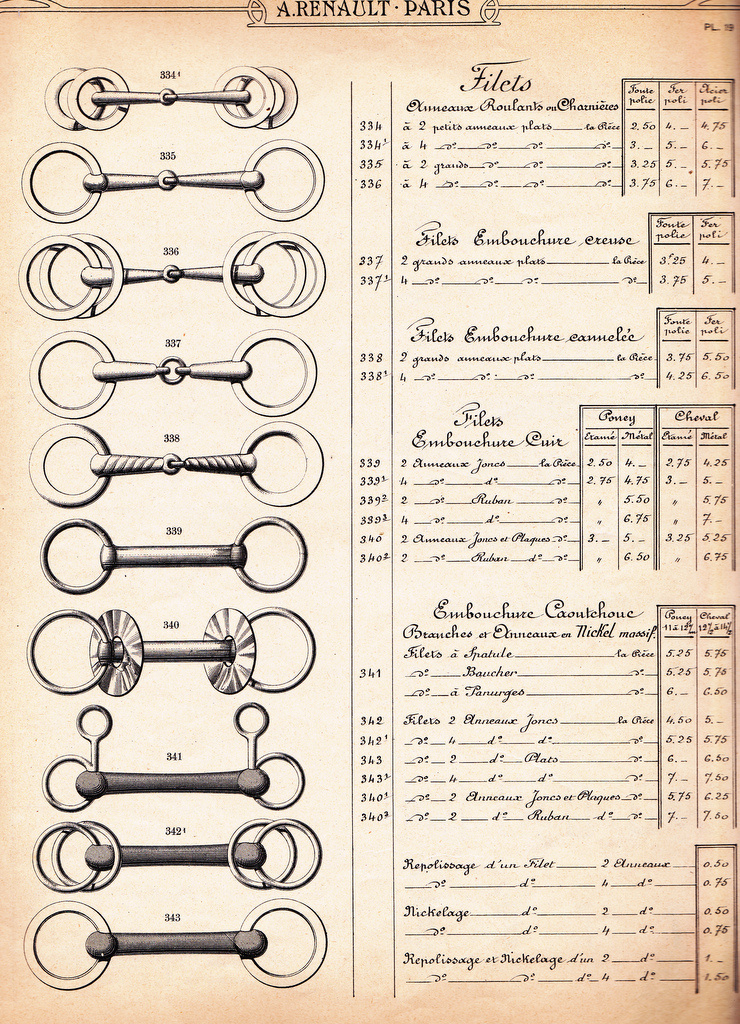 A.RENAULT·PARIS
PL. 19
334¹
335
336
337
338
339
340
341
342¹
343
Filets
Anneaux Roulants ou Charnières
Fonte polie Fer poli Acier poli
334 à 2 petits anneaux plats la Pièce 2.50 4.– 4.75
334¹ à 4 d° d° d° d° 3.– 5.– 6.–
335 à 2 grands d° d° d° 3.25 5.– 5.75
336 à 4 d° d° d° 3.75 6.– 7.–
Filets Embouchure creuse
Fonte polie Fer poli
337 2 grands anneaux plats la Pièce 3.25 4.–
337¹ 4 d° d° d° d° 3.75 5.–
Filets Embouchure cannelée
Fonte polie Fer poli
338 2 grands anneaux plats la Pièce 3.75 5.50
338¹ 4 d° d° d° d° 4.25 6.50
Filets
Embouchure Cuir
Poney Cheval
Étamé Métal Étamé Métal
339 2 Anneaux Joncs la Pièce 2.50 4.– 2.75 4.25
339¹ 4 d° d° d° 2.75 4.75 3.– 5.–
339² 2 d° Ruban d° " 5.50 " 5.75
339³ 4 d° d° d° " 6.75 " 7.–
340 2 Anneaux Joncs et Plaques d° 3.– 5.– 3.25 5.25
340² 2 d° Ruban d° d° " 6.50 " 6.75
Embouchure Caoutchouc
Branches et Anneaux en Nickel massif.
Poney 11 à 12½ Cheval 12½ à 14½
Filets à Spatule la Pièce 5.25 5.75
341 d° Baucher d° 5.25 5.75
d° à Panurges d° 6.– 6.50
342 Filets 2 Anneaux Joncs la Pièce 4.50 5.–
342¹ d° 4 d° d° d° 5.25 5.75
343 d° 2 d° Plats d° 6.– 6.50
343¹ d° 4 d° d° d° 7.– 7.50
340¹ d° 2 Anneaux Joncs et Plaques d° 5.75 6.25
340³ d° 2 d° Ruban d° d° 7.– 7.50
Repolissage d'un Filet 2 Anneaux 0.50
d° d° 4 d° 0.75
Nickelage d° 2 d° 0.50
d° d° 4 d° 0.75
Repolissage et Nickelage d'un 2 d° 1.–
d° d° d° 4 d° 1.50